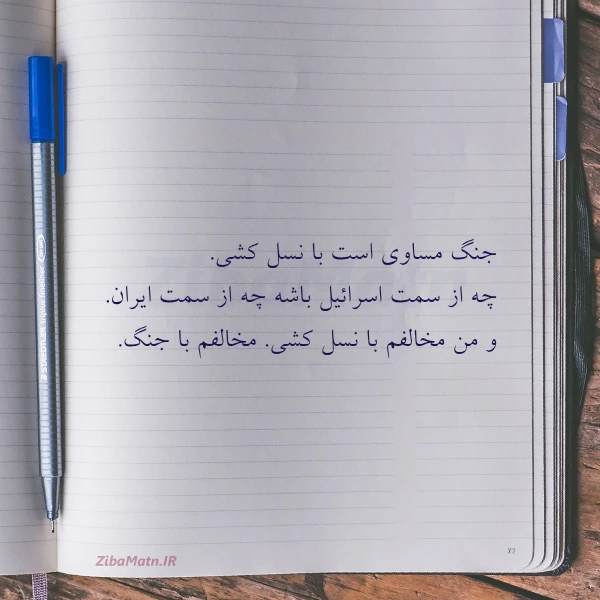 جنگ مساوی است با نسل کشی.
چه از سمت اسرائیل باشه چه از سمت ایران.
و من مخالفم با نسل کشی. مخالفم با جنگ.
ZibaMatn.IR